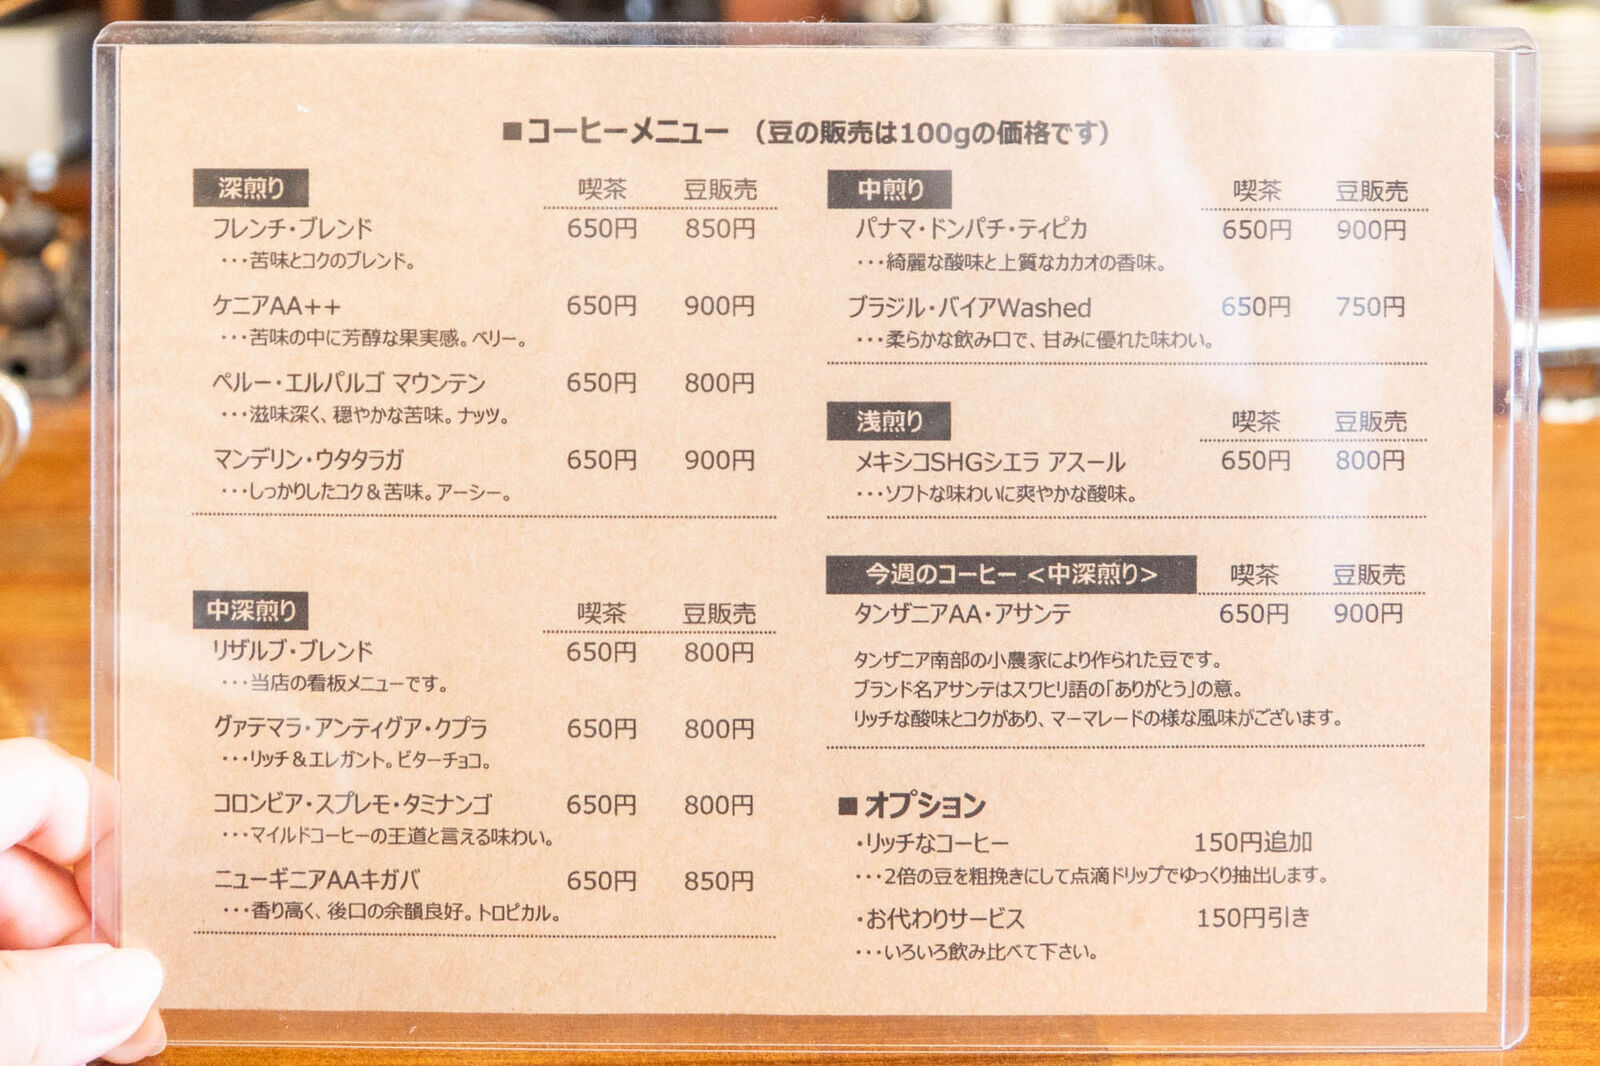 ■コーヒーメニュー （豆の販売は100gの価格です）
深煎り 喫茶 豆販売
フレンチ・ブレンド 650円 850円
・・・苦味とコクのブレンド。
ケニアAA++ 650円 900円
・・・苦味の中に芳醇な果実感。ベリー。
ペルー・エルパルゴ マウンテン 650円 800円
・・・滋味深く、穏やかな苦味。ナッツ。
マンデリン・ウタタラガ 650円 900円
・・・しっかりしたコク＆苦味。アーシー。
中深煎り 喫茶 豆販売
リザルブ・ブレンド 650円 800円
・・・当店の看板メニューです。
グァテマラ・アンティグア・クプラ 650円 800円
・・・リッチ＆エレガント。ビターチョコ。
コロンビア・スプレモ・タミナンゴ 650円 800円
・・・マイルドコーヒーの王道と言える味わい。
ニューギニアAAキガバ 650円 850円
・・・香り高く、後口の余韻良好。トロピカル。
中煎り 喫茶 豆販売
パナマ・ドンパチ・ティピカ 650円 900円
・・・綺麗な酸味と上質なカカオの香味。
ブラジル・バイアWashed 650円 750円
・・・柔らかな飲み口で、甘みに優れた味わい。
浅煎り 喫茶 豆販売
メキシコSHGシエラ アスール 650円 800円
・・・ソフトな味わいに爽やかな酸味。
今週のコーヒー＜中深煎り＞ 喫茶 豆販売
タンザニアAA・アサンテ 650円 900円
タンザニア南部の小農家により作られた豆です。
ブランド名アサンテはスワヒリ語の「ありがとう」の意。
リッチな酸味とコクがあり、マーマレードの様な風味がございます。
■オプション
・リッチなコーヒー 150円追加
・・・2倍の豆を粗挽きにして点滴ドリップでゆっくり抽出します。
・お代わりサービス 150円引き
・・・いろいろ飲み比べて下さい。